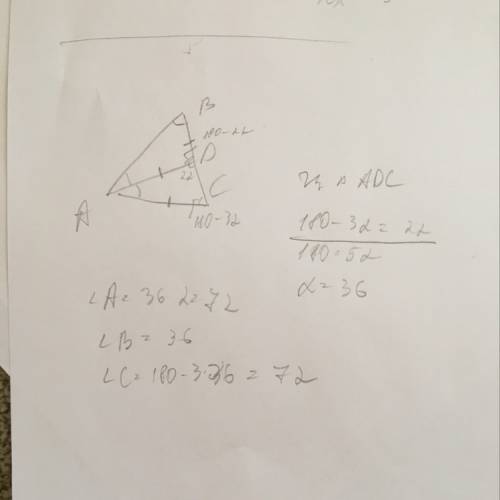 B
180-2α
D
2α
A
C
180-3α
Из △ ADC
180-3α = 2α
180=5α
α=36
∠A= 36·2=72
∠B= 36
∠C=180-3·36 = 72